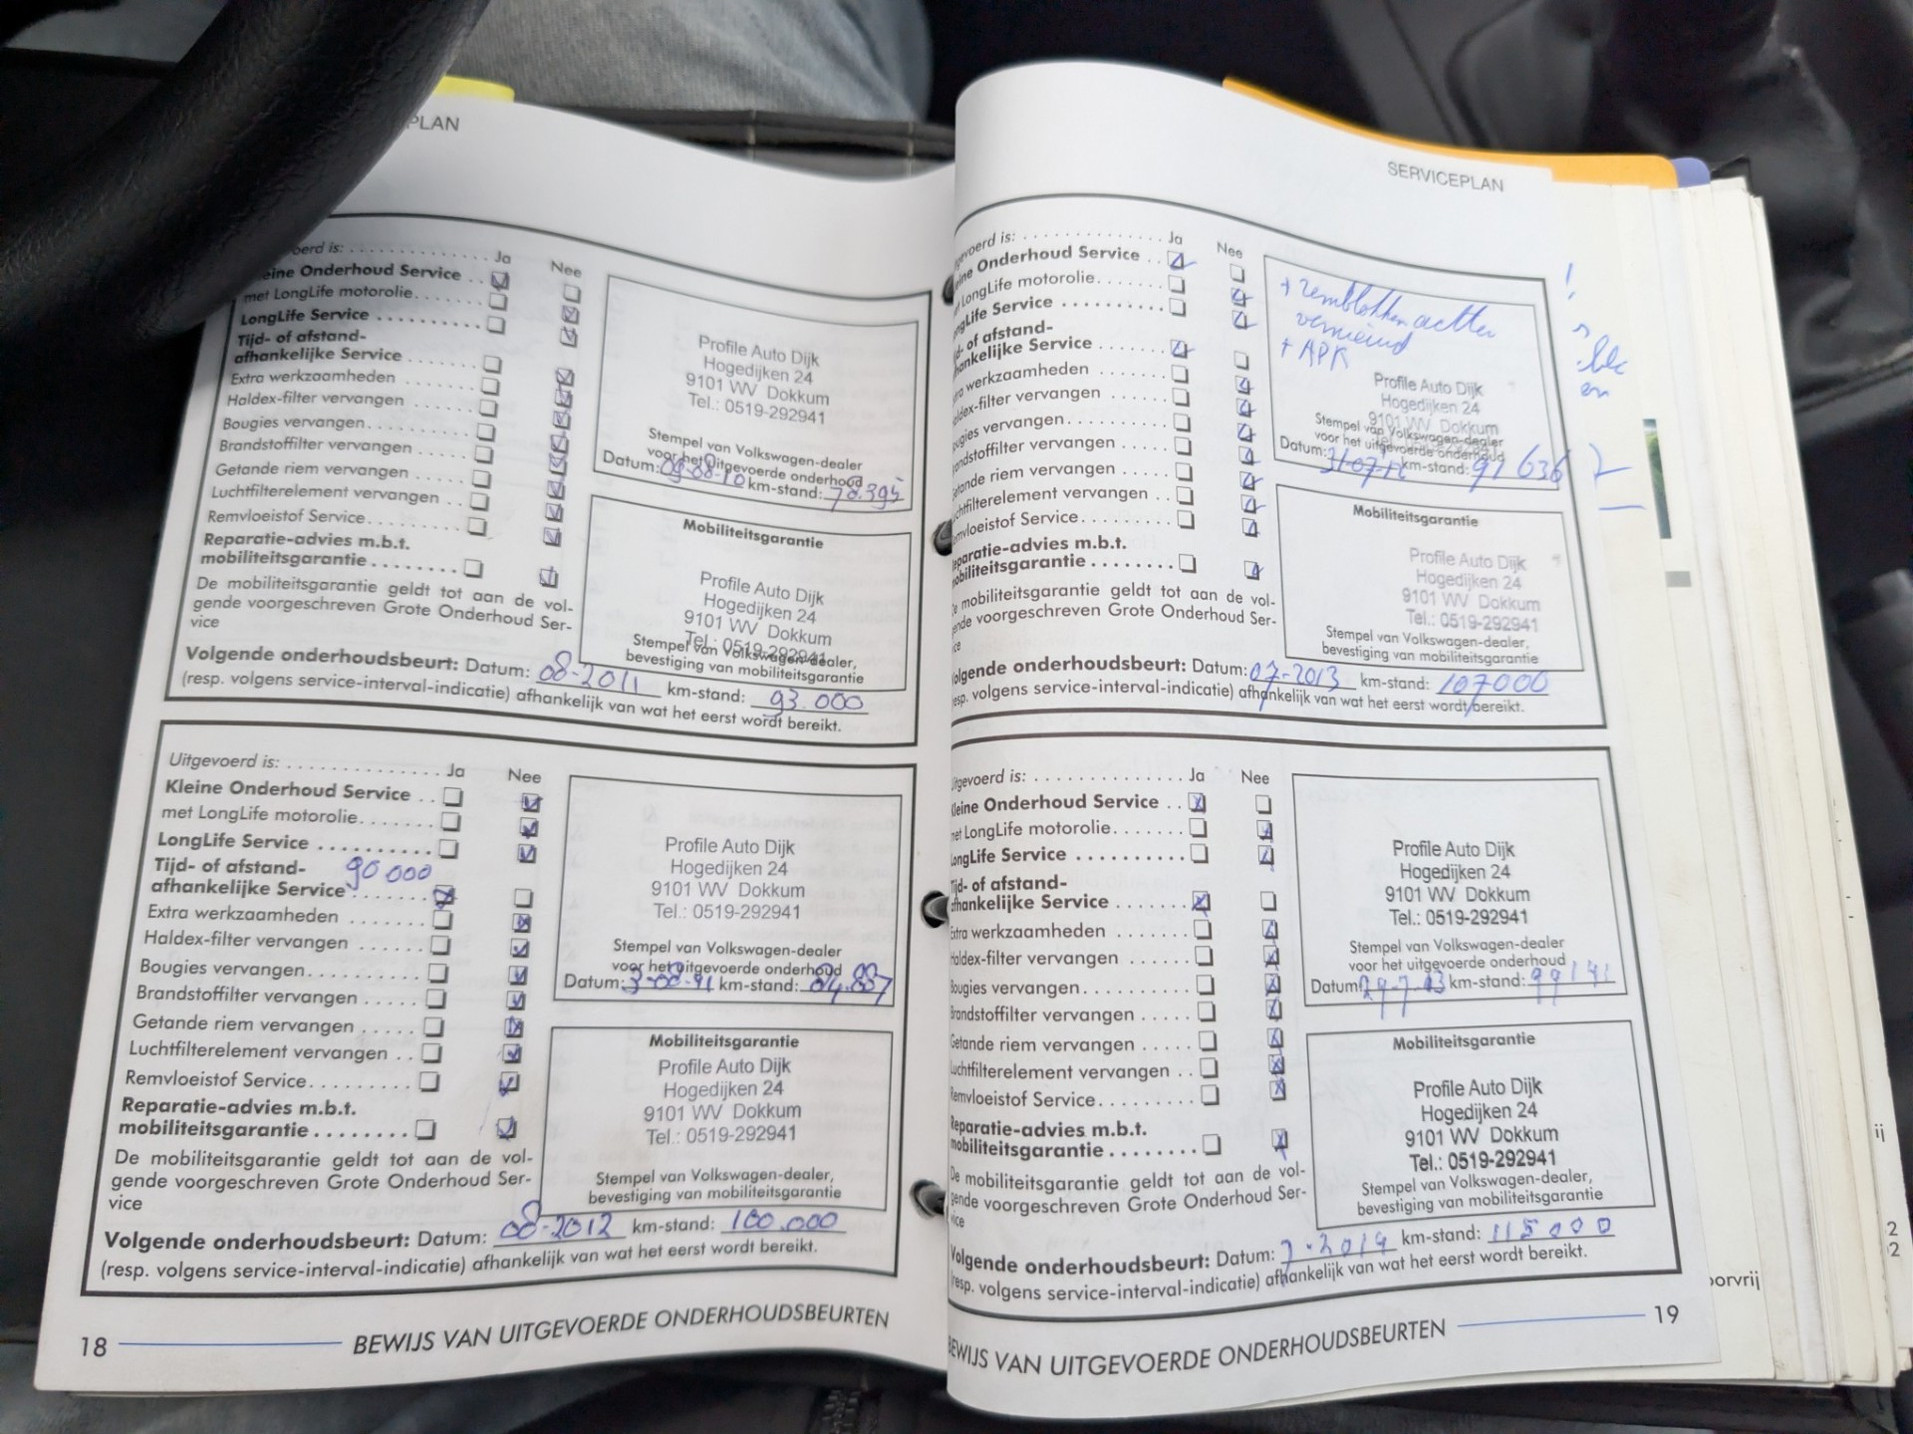 PLAN
oerd is: . . . . . . . . . . . . . . . . Ja Nee
eine Onderhoud Service . .
met LongLife motorolie . . . . . . .
LongLife Service . . . . . . . . . .
Tijd- of afstand-
afhankelijke Service . . . . . . .
Extra werkzaamheden . . . . . .
Haldex-filter vervangen . . . . . .
Bougies vervangen. . . . . . . . . .
Brandstoffilter vervangen . . . . .
Getande riem vervangen . . . . .
Luchtfilterelement vervangen . .
Remvloeistof Service. . . . . . . . .
Reparatie-advies m.b.t.
mobiliteitsgarantie . . . . . . . .
De mobiliteitsgarantie geldt tot aan de vol-
gende voorgeschreven Grote Onderhoud Ser-
vice
Profile Auto Dijk
Hogedijken 24
9101 WV Dokkum
Tel.: 0519-292941
Stempel van Volkswagen-dealer
voor het uitgevoerde onderhoud
Datum: 09-08-10 km-stand: 78.395
Mobiliteitsgarantie
Profile Auto Dijk
Hogedijken 24
9101 WV Dokkum
Tel.: 0519-292941
Stempel van Volkswagen-dealer,
bevestiging van mobiliteitsgarantie
Volgende onderhoudsbeurt: Datum: 08-2011 km-stand: 93.000
(resp. volgens service-interval-indicatie) afhankelijk van wat het eerst wordt bereikt.
Uitgevoerd is: . . . . . . . . . . . . . . Ja Nee
Kleine Onderhoud Service . .
met LongLife motorolie. . . . . . .
LongLife Service . . . . . . . . . .
Tijd- of afstand- 90 000
afhankelijke Service . . . . . . .
Extra werkzaamheden . . . . . .
Haldex-filter vervangen . . . . . .
Bougies vervangen. . . . . . . . . .
Brandstoffilter vervangen . . . . .
Getande riem vervangen . . . . .
Luchtfilterelement vervangen . .
Remvloeistof Service. . . . . . . . .
Reparatie-advies m.b.t.
mobiliteitsgarantie . . . . . . . .
De mobiliteitsgarantie geldt tot aan de vol-
gende voorgeschreven Grote Onderhoud Ser-
vice
Profile Auto Dijk
Hogedijken 24
9101 WV Dokkum
Tel.: 0519-292941
Stempel van Volkswagen-dealer
voor het uitgevoerde onderhoud
Datum: 3-08-11 km-stand: 84.887
Mobiliteitsgarantie
Profile Auto Dijk
Hogedijken 24
9101 WV Dokkum
Tel.: 0519-292941
Stempel van Volkswagen-dealer,
bevestiging van mobiliteitsgarantie
Volgende onderhoudsbeurt: Datum: 08-2012 km-stand: 100.000
(resp. volgens service-interval-indicatie) afhankelijk van wat het eerst wordt bereikt.
18 BEWIJS VAN UITGEVOERDE ONDERHOUDSBEURTEN
SERVICEPLAN
gevoerd is: . . . . . . . . . . . . . . Ja Nee
eine Onderhoud Service . .
LongLife motorolie. . . . . . .
ngLife Service . . . . . . . . . .
d- of afstand-
hankelijke Service . . . . . . .
tra werkzaamheden . . . . . .
aldex-filter vervangen . . . . . .
ugies vervangen. . . . . . . . . .
andstoffilter vervangen . . . . .
etande riem vervangen . . . . .
uchtfilterelement vervangen . .
emvloeistof Service. . . . . . . . .
eparatie-advies m.b.t.
obiliteitsgarantie . . . . . . . .
e mobiliteitsgarantie geldt tot aan de vol-
ende voorgeschreven Grote Onderhoud Ser-
ice
+ remblokken achter
vernieuwd
+ APK
Profile Auto Dijk
Hogedijken 24
9101 WV Dokkum
Stempel van Volkswagen-dealer
voor het uitgevoerde onderhoud
Datum: 31-07-12 km-stand: 91636
Mobiliteitsgarantie
Profile Auto Dijk
Hogedijken 24
9101 WV Dokkum
Tel.: 0519-292941
Stempel van Volkswagen-dealer,
bevestiging van mobiliteitsgarantie
olgende onderhoudsbeurt: Datum: 07-2013 km-stand: 107000
esp. volgens service-interval-indicatie) afhankelijk van wat het eerst wordt bereikt.
itgevoerd is: . . . . . . . . . . . . . . Ja Nee
Kleine Onderhoud Service . .
met LongLife motorolie. . . . . . .
LongLife Service . . . . . . . . . .
Tijd- of afstand-
afhankelijke Service . . . . . . .
Extra werkzaamheden . . . . . .
Haldex-filter vervangen . . . . . .
Bougies vervangen. . . . . . . . . .
Brandstoffilter vervangen . . . . .
Getande riem vervangen . . . . .
Luchtfilterelement vervangen . .
Remvloeistof Service. . . . . . . . .
Reparatie-advies m.b.t.
mobiliteitsgarantie . . . . . . . .
De mobiliteitsgarantie geldt tot aan de vol-
gende voorgeschreven Grote Onderhoud Ser-
vice
Profile Auto Dijk
Hogedijken 24
9101 WV Dokkum
Tel.: 0519-292941
Stempel van Volkswagen-dealer
voor het uitgevoerde onderhoud
Datum: 29-7-13 km-stand: 99141
Mobiliteitsgarantie
Profile Auto Dijk
Hogedijken 24
9101 WV Dokkum
Tel.: 0519-292941
Stempel van Volkswagen-dealer,
bevestiging van mobiliteitsgarantie
Volgende onderhoudsbeurt: Datum: 7-2014 km-stand: 115000
(resp. volgens service-interval-indicatie) afhankelijk van wat het eerst wordt bereikt.
EWIJS VAN UITGEVOERDE ONDERHOUDSBEURTEN 19
ij
2
2
oorvrij